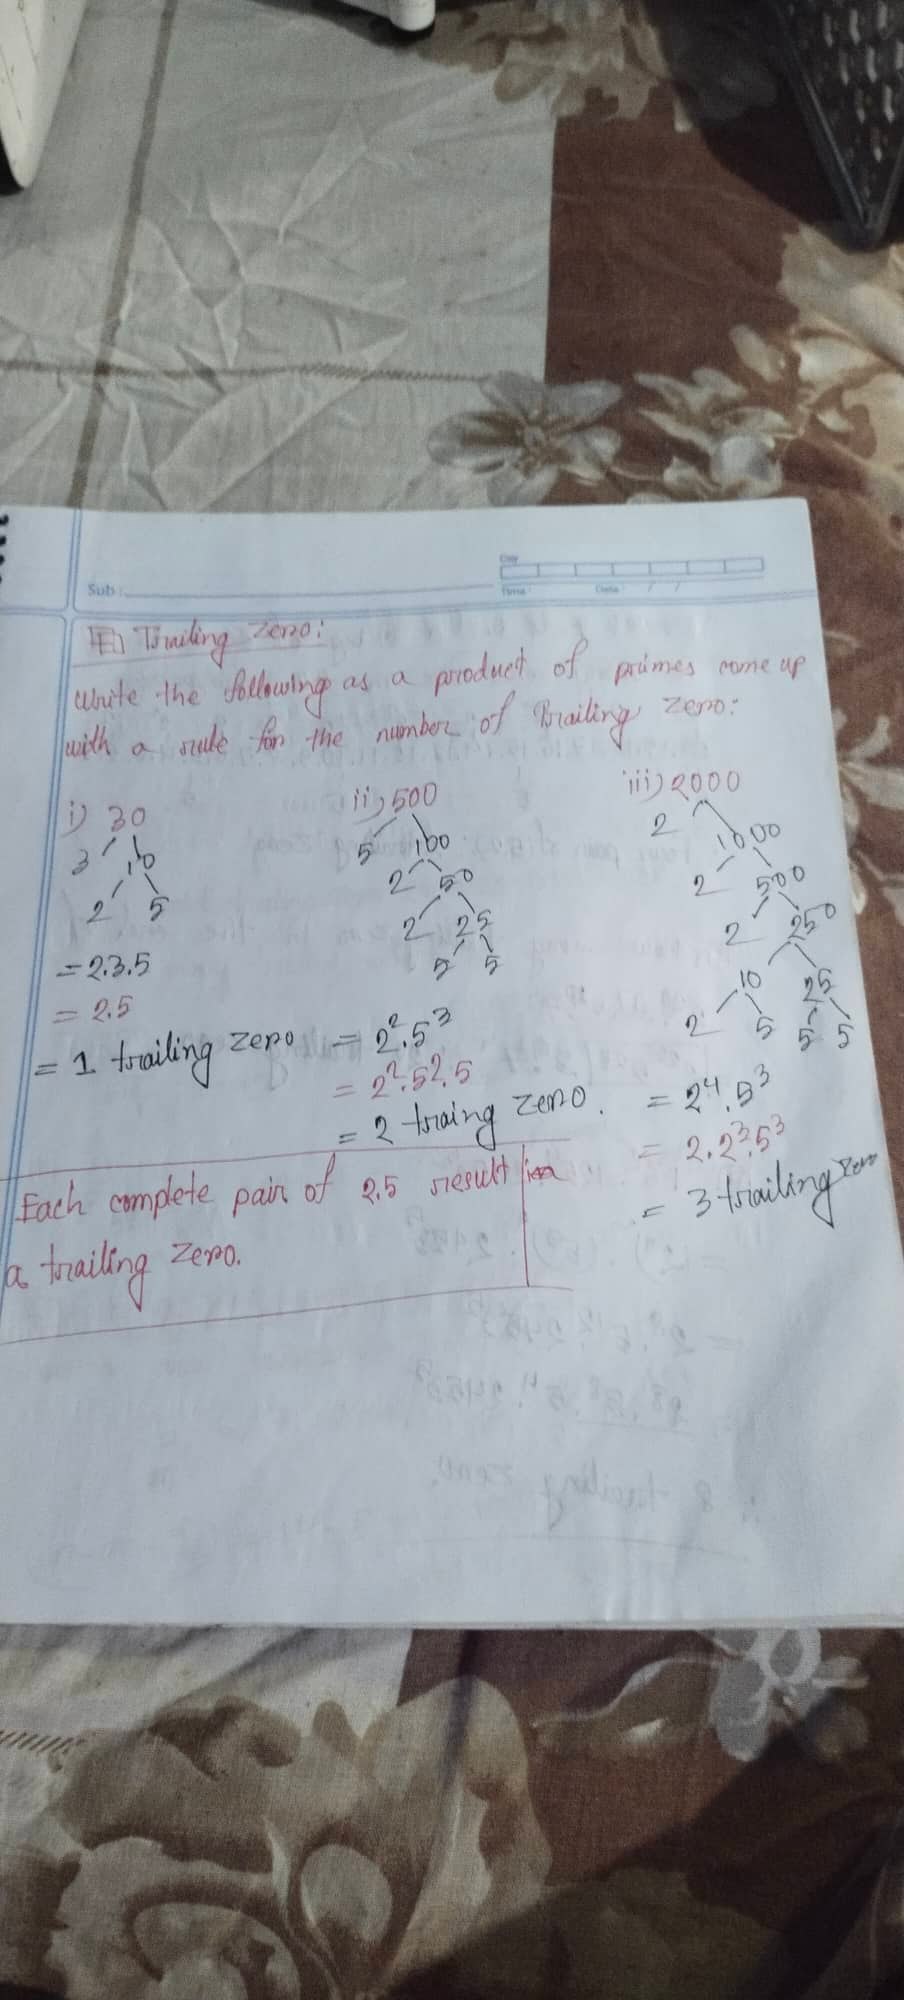 Sub:
Day
Time:
Date: / /
Trailing zero:
Write the following as a product of primes come up
with a rule for the number of Trailing zero:
i) 30
3 10
2 5
= 2.3.5
= 2.5
= 1 trailing zero
ii) 500
5 100
2 50
2 25
5 5
= 2².5³
= 2².5².5
= 2 traing zero.
iii) 2000
2 1000
2 500
2 250
10 25
2 5 5 5
= 2⁴.5³
= 2.2³.5³
= 3 trailing zero
Each complete pair of 2.5 result in
a trailing zero.